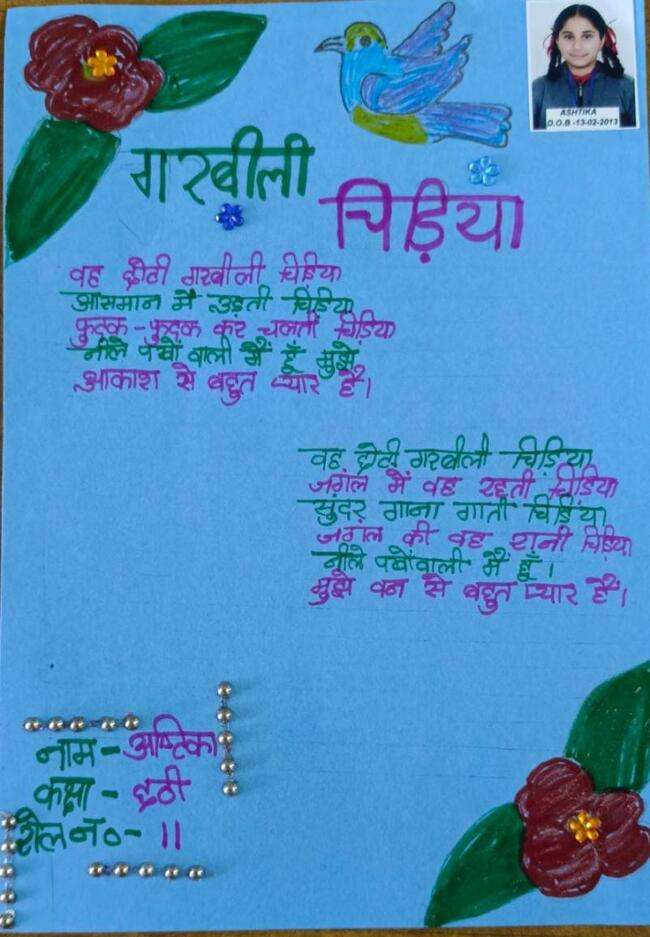 ASHTIKA
D.O.B -13-02-2013
गरबीली
चिड़िया
वह छोटी गरबीली चिड़िया
आसमान में उड़ती चिड़िया
फुदक-फुदक कर चलती चिड़िया
नीले पंखों वाली मैं हूँ मुझे
आकाश से बहुत प्यार है।
वह छोटी गरबीली चिड़िया
जगंल में वह रहती चिड़िया
सुंदर गाना गाती चिड़िया
जगंल की वह रानी चिड़िया
नीले पंखोंवाली मैं हूँ।
मुझे वन से बहुत प्यार है।
नाम - अष्टिका
कक्षा - छठी
रोल नं० - 11